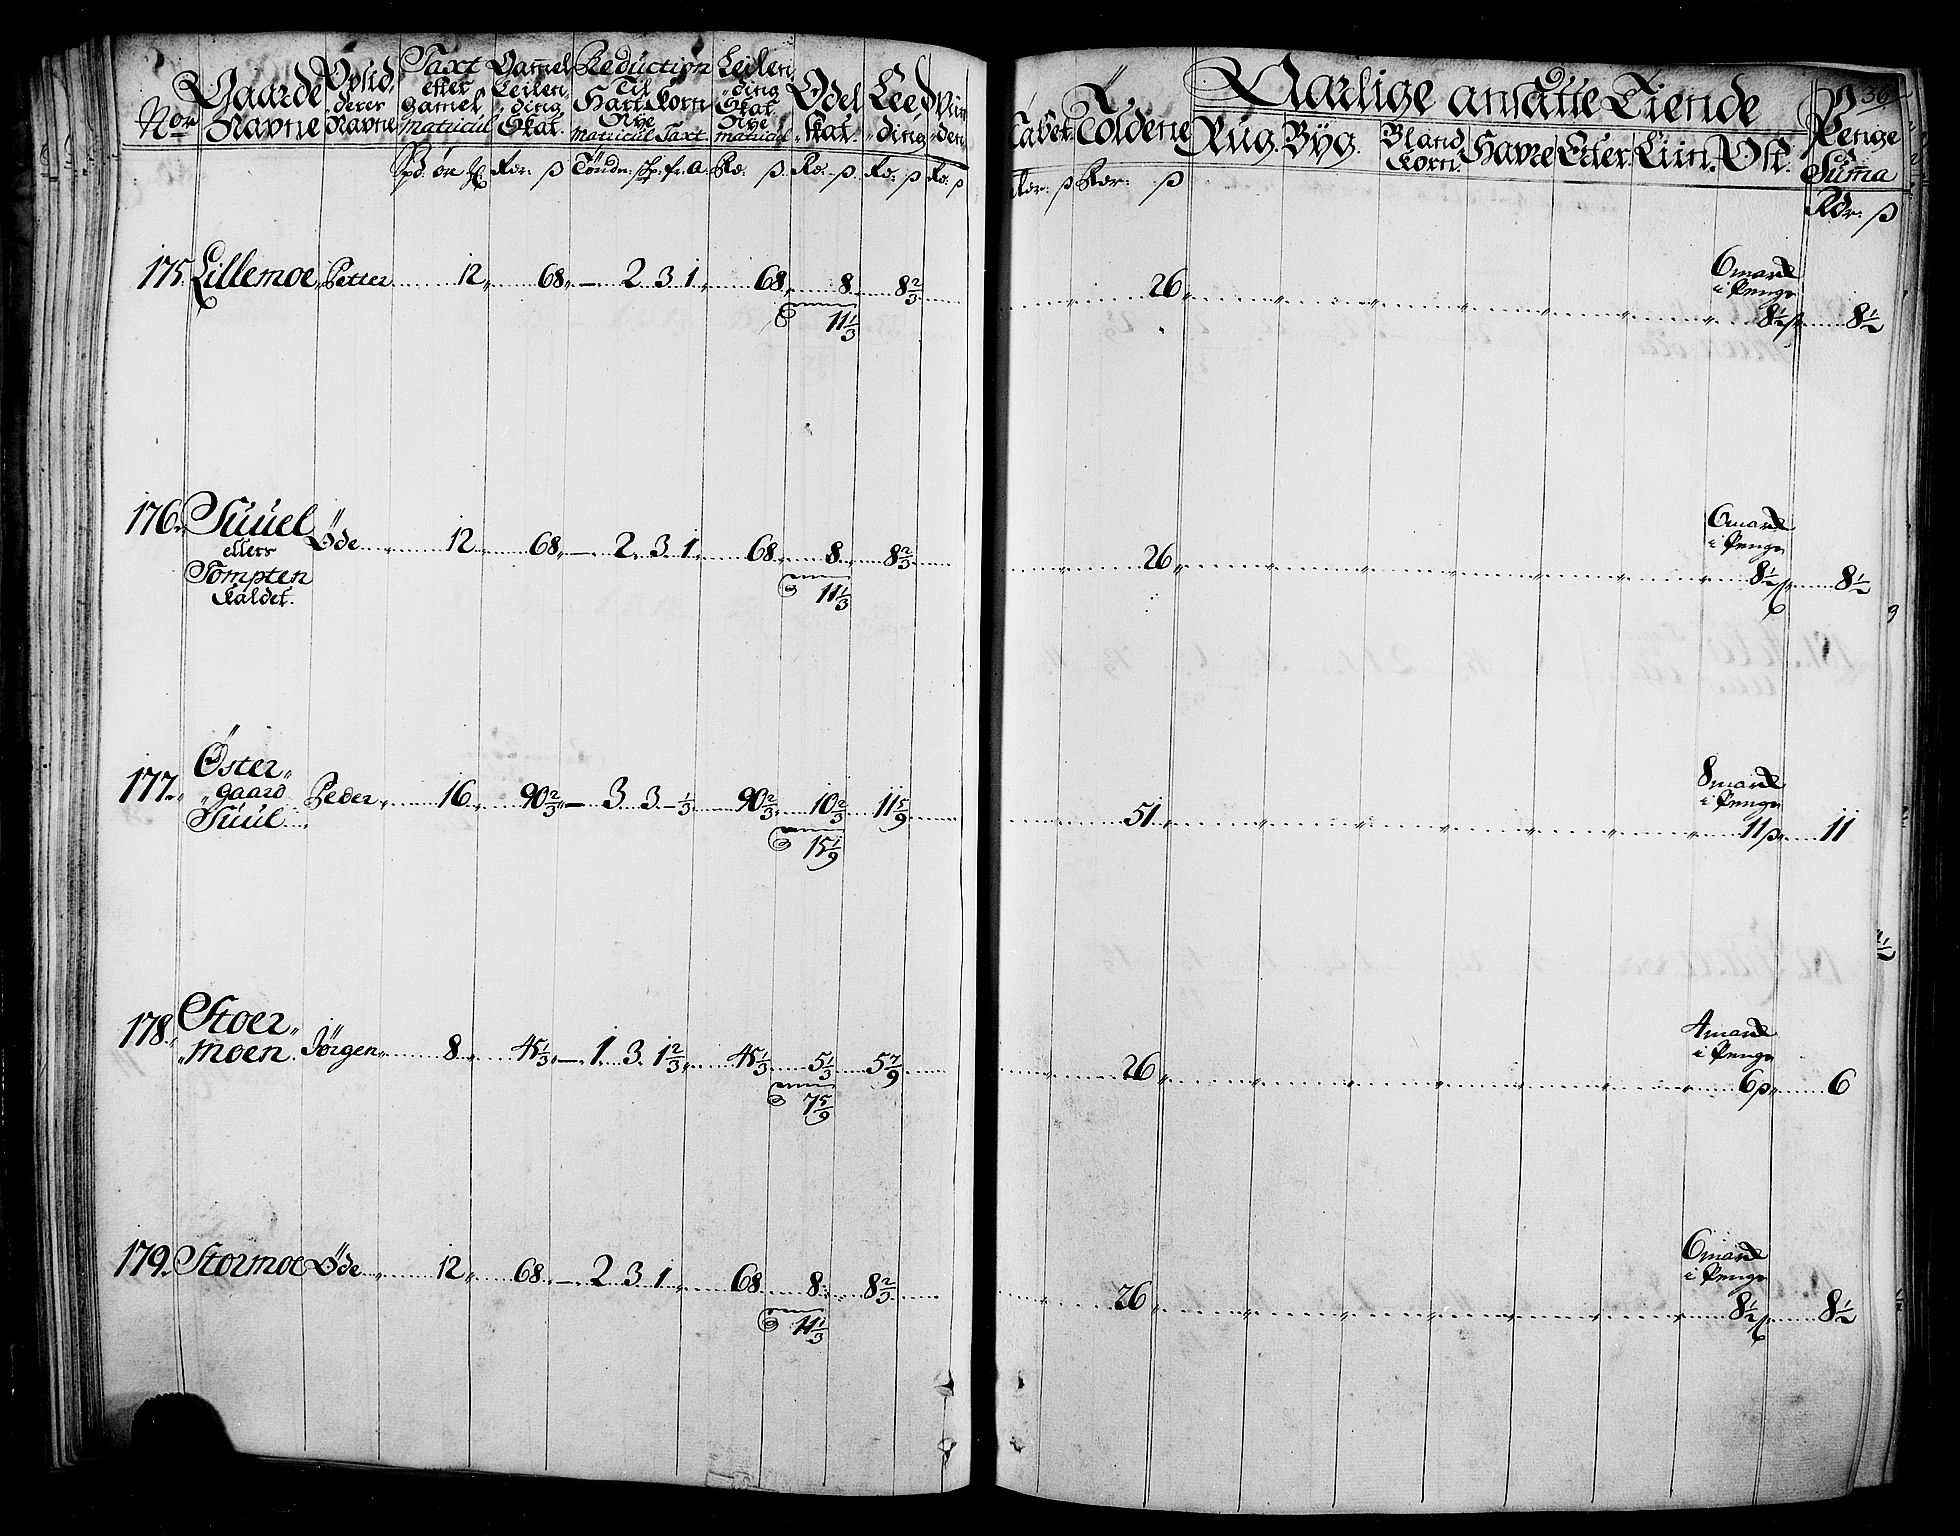 Nor Gaarde Navne Opsid, derer Navne Taxt efter Gamel Matricul Gamel Leilen, ding Skat. Reduction Til Hart Korn Nye Matricul Taxt Leilen, ding Skat Nye Matricul Odel Skat. Leeding
Spd. ør Rdr: ß Tönder. sk. fr. a. Rd. ß Rd. ß Rd. ß Rd. ß
175. Lillemoe, Petter 12 68 2 3 1 68 8 8 2/3
11 1/3
176. Suuel Öde 12 68 2 3 1 68 8 8 2/3
ellers
Tompten
kaldet.
11 1/3
177. Öster
gaard Peder 16 90 2/3 3 3 1/3 90 2/3 10 2/3 11 5/9
Suul
15 1/9
178. Stoer
moen Jörgen 8 45 1/3 1 3 1 2/3 45 1/3 5 1/3 5 7/9
7 5/9
179. Stormoe Öde 12 68 2 3 1 68 8 8 2/3
11 1/3
36
Aarlige ansatte Tiende
Toldene Rug. Byg. Bland Korn. Havre Erter. Liin. Ost. Penge Suma
Rdr: ß Rdr: ß Rdr: ß
26 6 mark
i Penge
8 1/2 ß 8 1/2
26 6 mark
i Penge
8 1/2 ß 8 1/2
51 8 mark
i Penge
11 ß 11
26 4 mark
i Penge
6 ß 6
26 6 mark
i Penge
8 1/2 ß 8 1/2